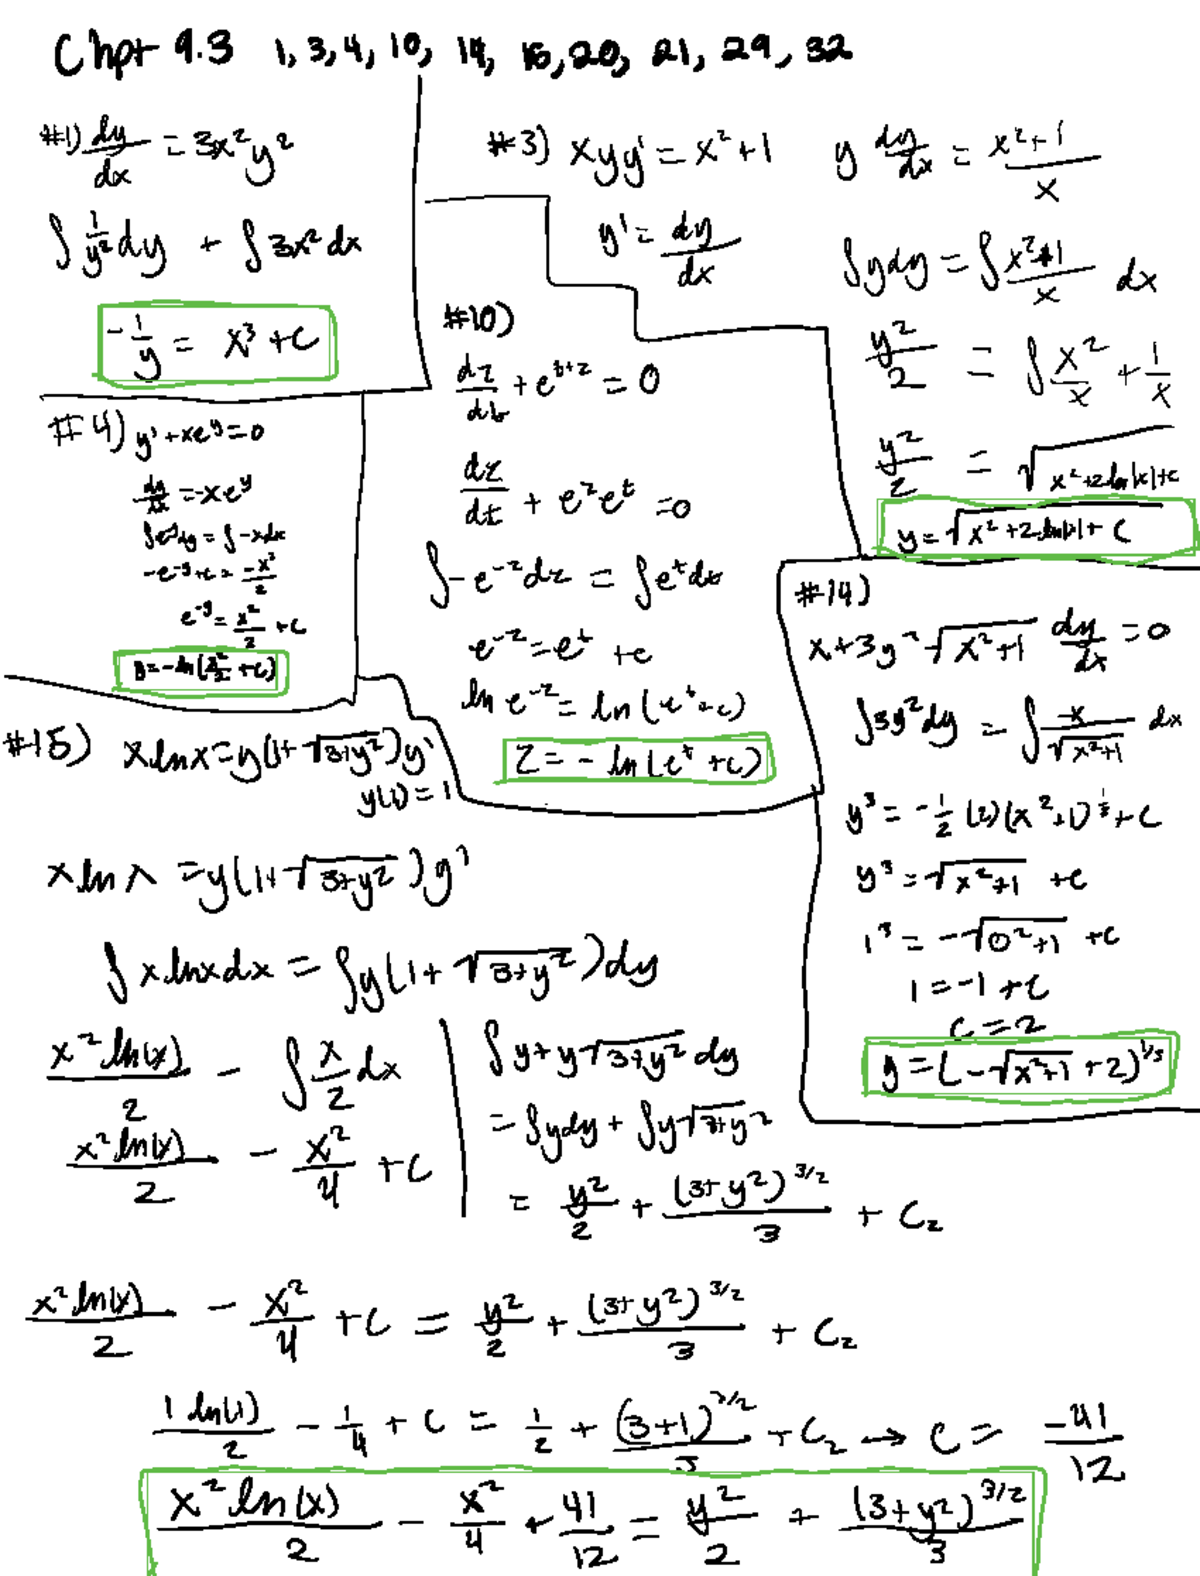 Chpt 9.3 1, 3, 4, 10, 14, 15, 20, 21, 29, 32
#1) dy/dx = 3x²y²
∫ 1/y² dy + ∫ 3x² dx
-1/y = x³ + C
#3) xyy' = x² + 1
y' = dy/dx
y dy/dx = (x²+1)/x
∫ y dy = ∫ (x²+1)/x dx
y²/2 = ∫ x²/x + 1/x
y²/2 = √(x²+2 ln|x|+c)
y = √(x²+2 ln|x|+ C)
#4) y' + xe^y = 0
dy/dx = -xe^y
∫ e^-y dy = ∫ -x dx
-e^-y + c = -x²/2
e^-y = x²/2 + C
y = -ln(x²/2 + C)
#10)
dz/dt + e^(t+z) = 0
dz/dt + e^z e^t = 0
∫ -e^-z dz = ∫ e^t dt
e^-z = e^t + c
ln e^-z = ln(e^t + c)
z = - ln(e^t + c)
#14)
x + 3y² √(x²+1) dy/dx = 0
∫ 3y² dy = ∫ -x/√(x²+1) dx
y³ = -1/2 (2)(x²+1)^½ + C
y³ = √(x²+1) + c
1³ = -√(0²+1) + C
1 = -1 + C
C = 2
y = (-√(x²+1) + 2)^1/3
#15) x ln x = y(1+ √(3+y²)) y'
y(1) = 1
x ln x = y(1+ √(3+y²)) y'
∫ x ln x dx = ∫ y(1+ √(3+y²)) dy
x² ln(x)/2 - ∫ x/2 dx
x² ln(x)/2 - x²/4 + C
∫ y + y√(3+y²) dy
= ∫ y dy + ∫ y√(3+y²)
= y²/2 + (3+y²)^3/2/3 + C₂
x² ln(x)/2 - x²/4 + C = y²/2 + (3+y²)^3/2/3 + C₂
1 ln(1)/2 - 1/4 + C = 1/2 + (3+1)^3/2/3 + C₂ → C = -41/12
x² ln(x)/2 - x²/4 + 41/12 = y²/2 + (3+y²)^3/2/3